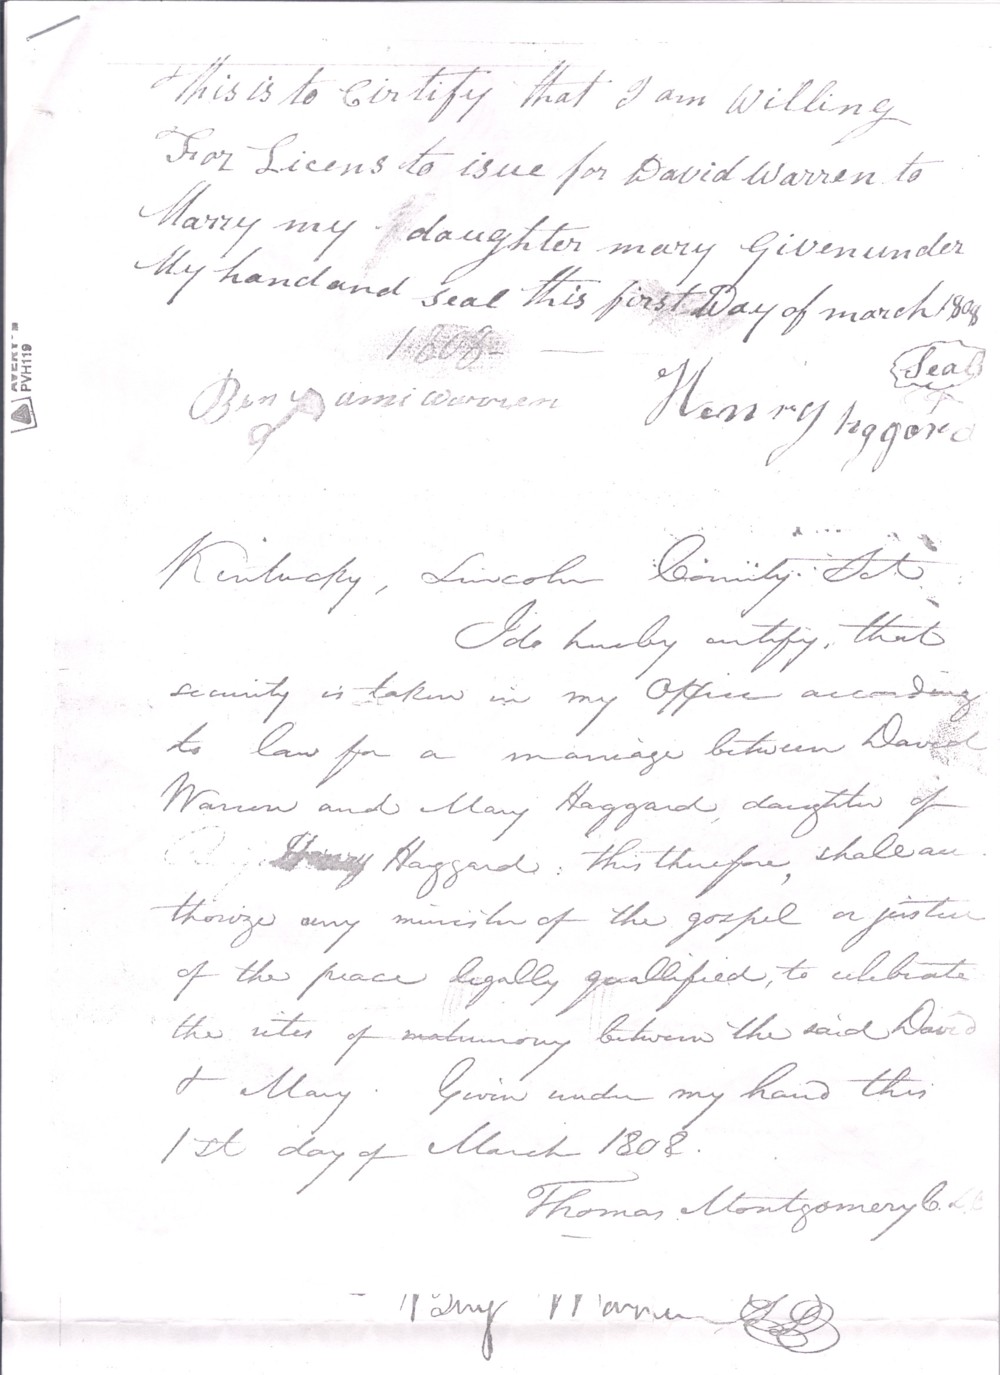 This is to Cirtify that I am Willing
For Licens to isue for David Warren to
Marry my daughter mary Givenunder
My hand and seal this first Day of march 1808
1808
Benjami Warren
Seal
Henry
Kentucky, Lincoln County Sct.
I do hereby certify, that
security is taken in my Office according
to law for a marriage between David
Warren and Mary Haggard, daughter of
Henry Haggard; this therefore, shall au
thorize any minister of the gospel or justice
of the peace legally quallified, to celebrate
the rites of matrimony between the said David
& Mary. Given under my hand this
1st day of March 1808.
Thomas Montgomery C. L.C
Warren
AVERY
PVH119